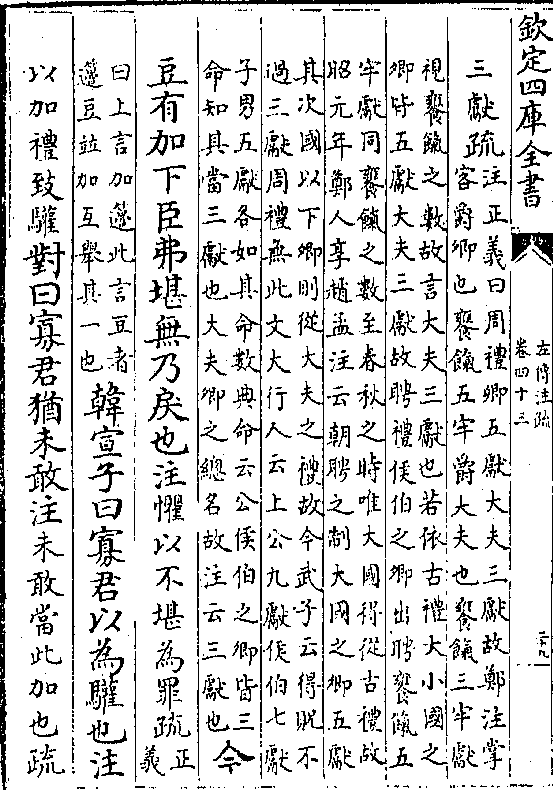 欽定四庫全書
左傳注疏
卷四十三
三獻疏
注正義曰周禮卿五獻大夫三獻故鄭注掌
客爵卿也饔餼五牢爵大夫也饔餼三牢獻
視饔餼之數故言大夫三獻也若依古禮大小國之
卿皆五獻大夫三獻故聘禮侯伯之卿出聘饔餼五
牢獻同饔餼之數至春秋之時唯大國得從古禮故
昭元年鄭人享趙孟注云朝聘之制大國之卿五獻
其次國以下卿則從大夫之禮故今武子云得貺不
過三獻周禮無此文大行人云上公九獻侯伯七獻
子男五獻各如其命數典命云公侯伯之卿皆三
命知其當三獻也大夫卿之總名故注云三獻也
今
豆有加下臣弗堪無乃戾也注懼以不堪為罪疏
正
義
曰上言加籩此言豆者
籩豆竝加互舉其一也
韓宣子曰寡君以為驩也注
以加禮致驩對曰寡君猶未敢注未敢當此加也疏